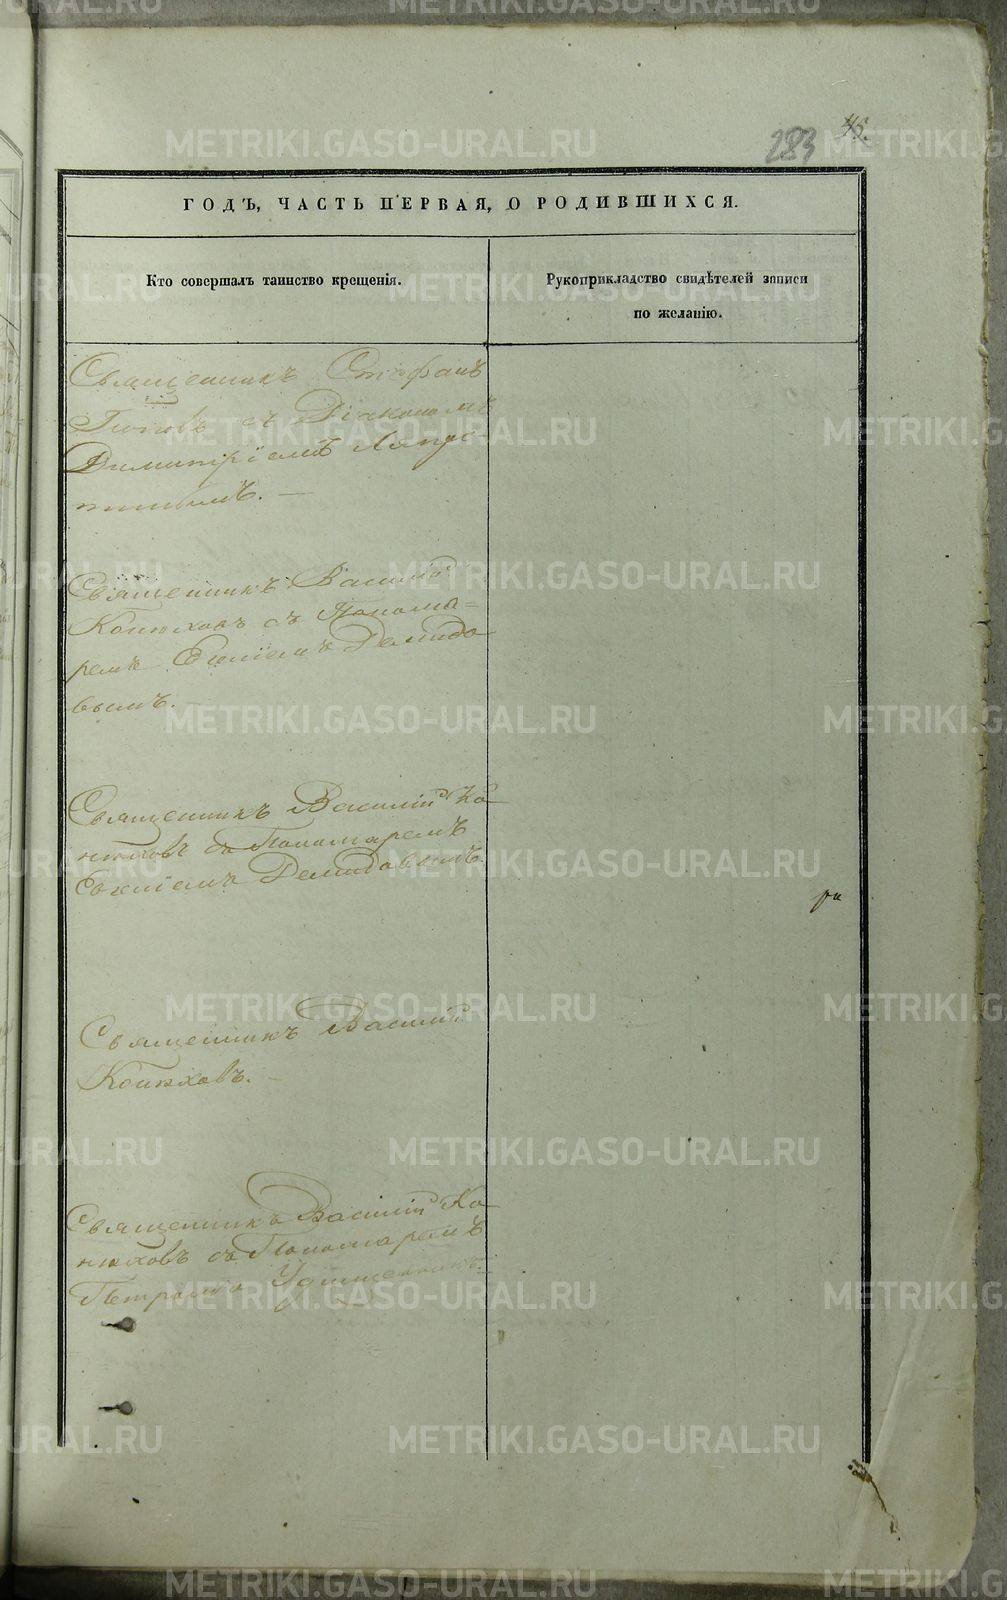 283 45.
ГОДЪ, ЧАСТЬ ПЕРВАЯ, О РОДИВШИХСЯ.
Кто совершалъ таинство крещенія.
Рукоприкладство свидѣтелей записи
по желанію.
Священникъ Стефанъ
съ Діакономъ
Димитріемъ
Священникъ Василій
Конюховъ съ Понома-
ремъ Демидо
вымъ.
Священникъ Василій Ко
нюховъ съ Пономаремъ
Демидовымъ.
Священникъ Василій
Конюховъ.
Священникъ Василій Ко
нюховъ съ Пономаремъ
Петромъ
METRIKI.GASO-URAL.RU